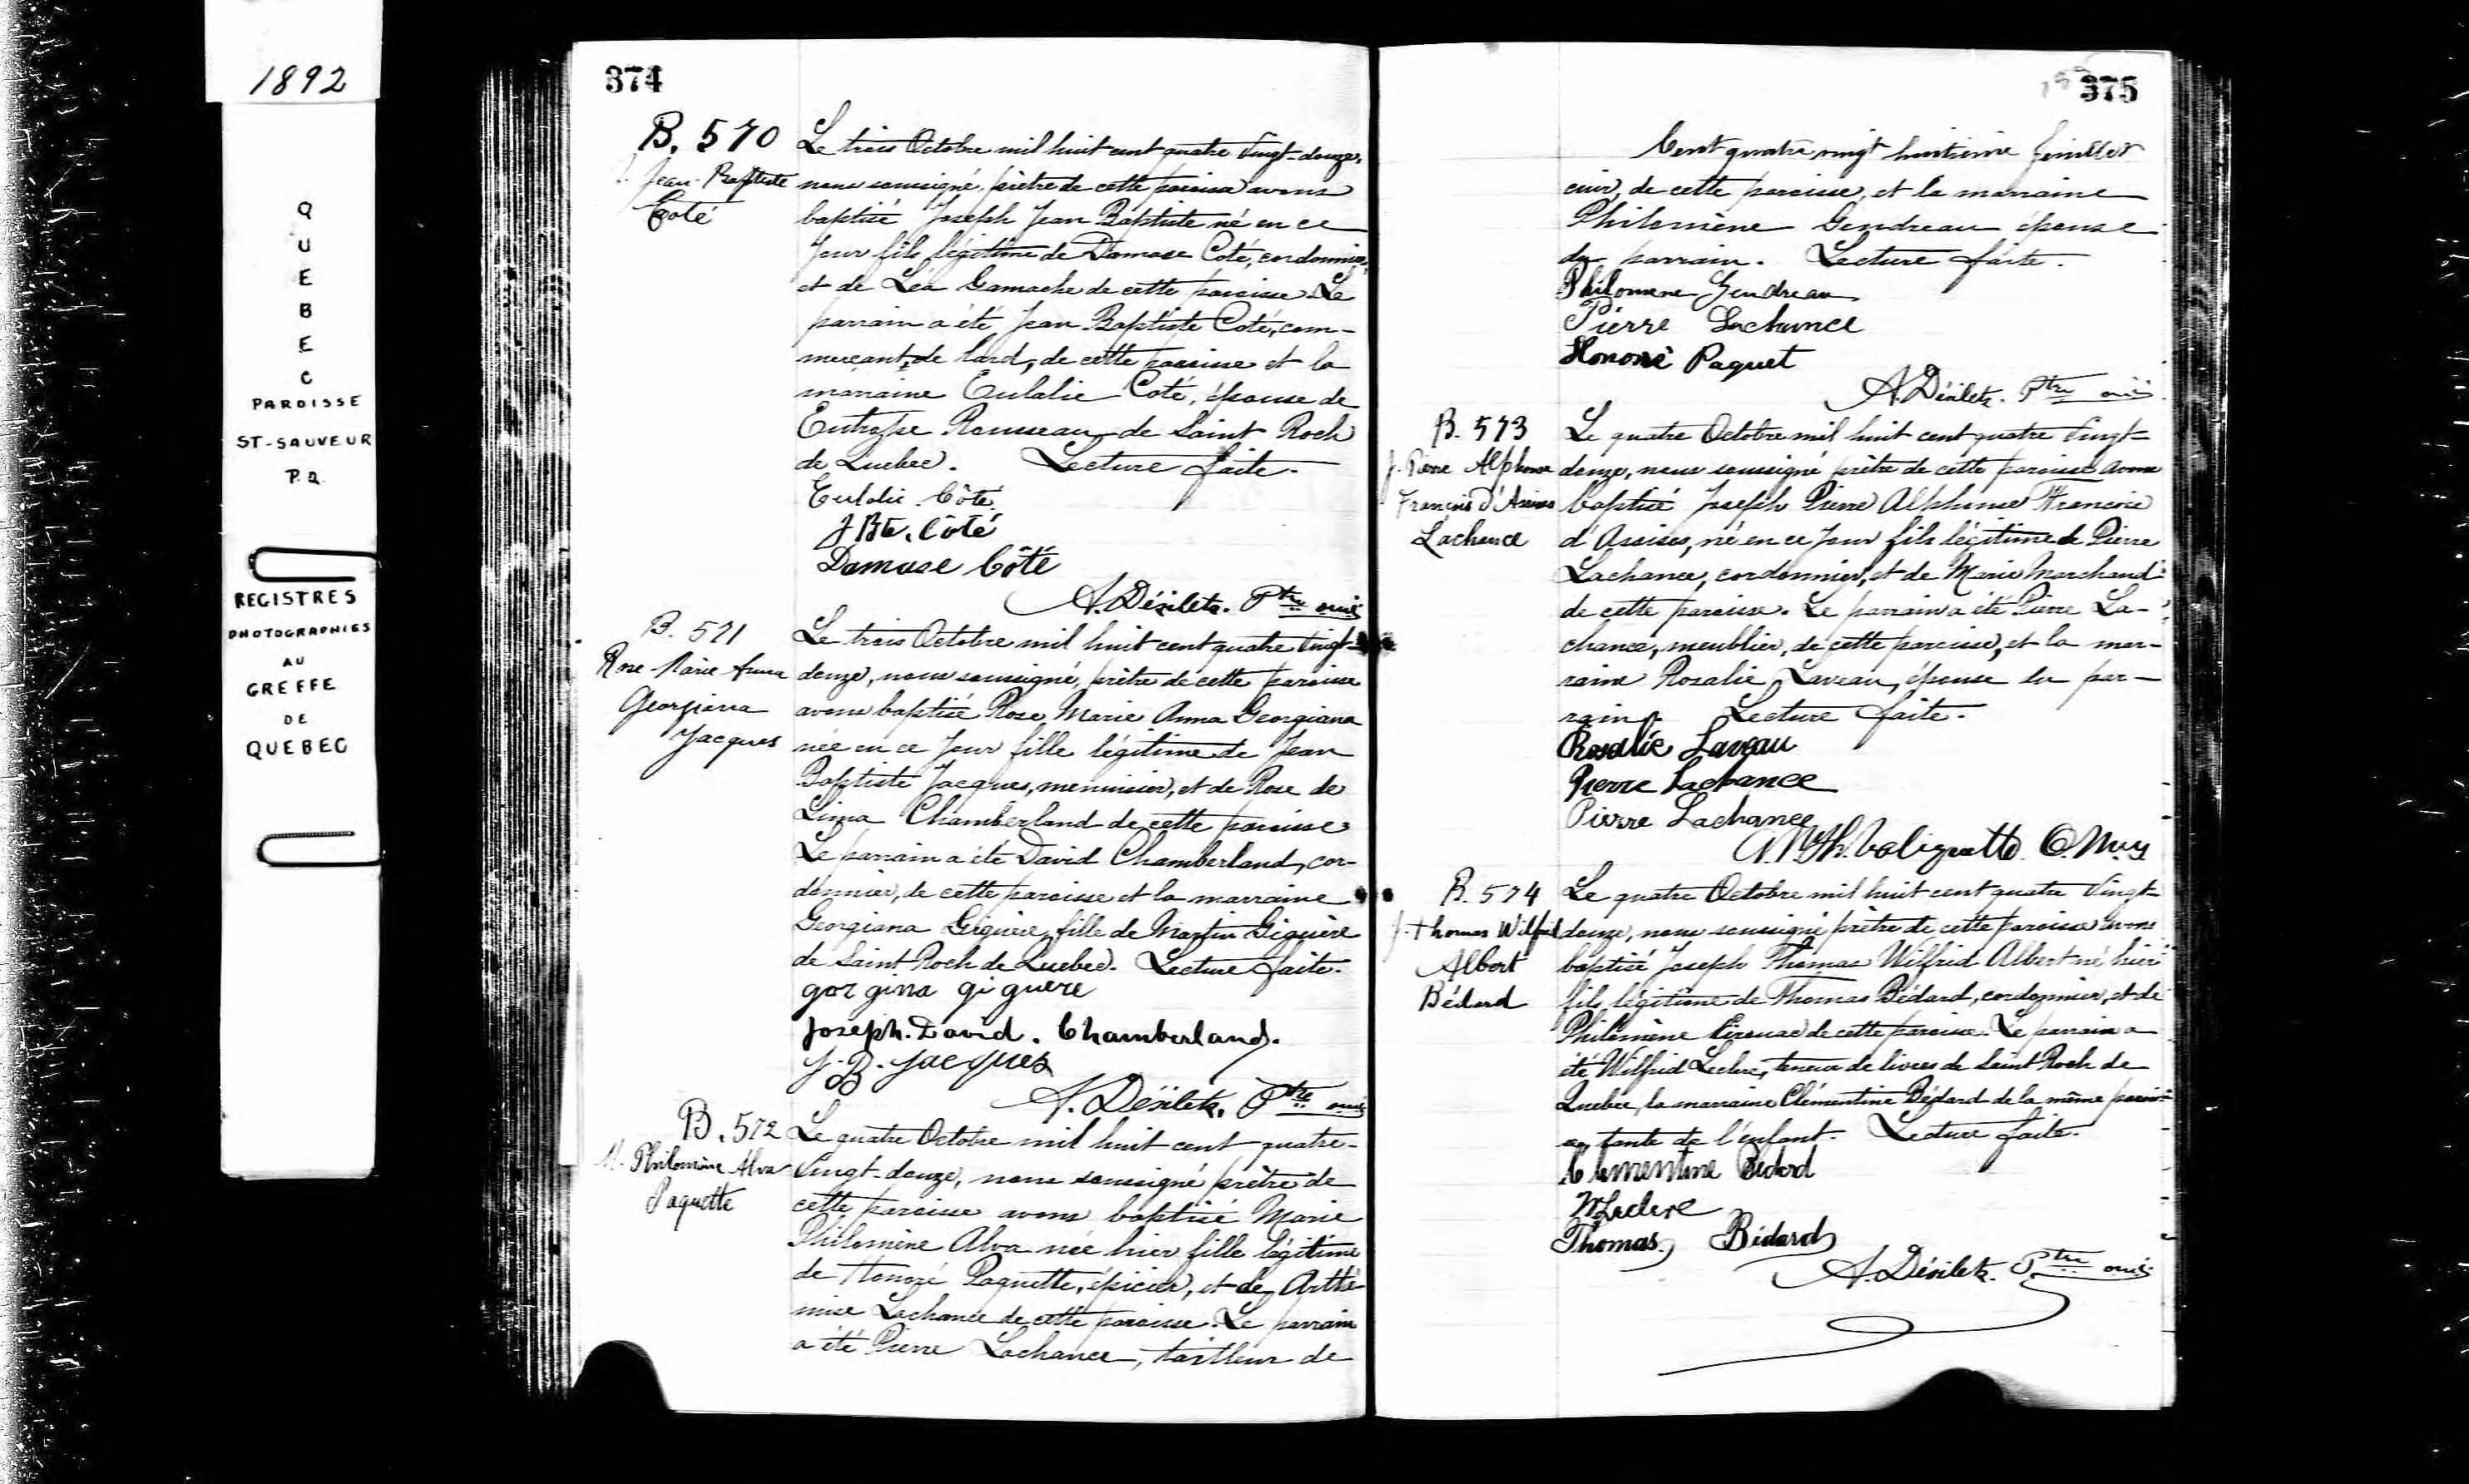 1892
QUEBEC
PAROISSE
ST-SAUVEUR
P.Q.
REGISTRES
PHOTOGRAPHIES
AU
GREFFE
DE
QUEBEC
374
B. 570
J. Jean-Baptiste
Coté
Le trois Octobre mil huit cent quatre vingt-douze,
nous soussigné, prêtre de cette paroisse avons
baptisé Joseph Jean Baptiste né en ce
jour fils légitime de Damase Coté, cordonnier,
et de Léa Gamache de cette paroisse. Le
parrain a été Jean Baptiste Coté, com-
merçant de lard, de cette paroisse et la
marraine Eulalie Coté, épouse de
Eutrope Rousseau de Saint Roch
de Quebec. Lecture faite.
Eulalie Côté
J Bte. Côté
Damase Côté
A. Désilets. Ptre omi
B. 571
Rose Marie Anna
Georgiana
Jacques
Le trois Octobre mil huit cent quatre vingt-
douze, nous soussigné, prêtre de cette paroisse
avons baptisé Rose Marie Anna Georgiana
née en ce jour fille légitime de Jean
Baptiste Jacques, menuisier, et de Rose de
Lima Chamberland de cette paroisse
Le parrain a été David Chamberland, cor-
donnier, de cette paroisse et la marraine
Georgiana Giguère, fille de Martin Giguère
de Saint Roch de Quebec. Lecture faite.
gorgina giguere
Joseph. David. Chamberland.
J-B. Jacques
A. Désilets. Ptre omi
B. 572
M. Philomène Alva
Paquette
Le quatre Octobre mil huit cent quatre-
vingt-douze, nous soussigné prêtre de
cette paroisse avons baptisé Marie
Philomène Alva née hier fille légitime
de Honoré Paquette, épicier, et de Arthé-
mise Lachance de cette paroisse. Le parrain
a été Pierre Lachance, tailleur de
375
Cent quatre vingt huitième feuillet
cuir, de cette paroisse, et la marraine
Philomène Gendreau épouse
du parrain. Lecture faite.
Philomene Gendreau
Pierre Lachance
Honoré Paquet
A. Désilets. Ptre omi
B. 573
J. Pierre Alphonse
François d'Assises
Lachance
Le quatre Octobre mil huit cent quatre vingt-
douze, nous soussigné prêtre de cette paroisse avons
baptisé Joseph Pierre Alphonse François
d'Assises, né en ce jour fils légitime de Pierre
Lachance, cordonnier, et de Marie Marchand
de cette paroisse. Le parrain a été Pierre La-
chance, meublier, de cette paroisse, et la mar-
raine Rosalie Laveau, épouse du par-
rain. Lecture faite.
Rosalie Laveau
Pierre Lachance
Pierre Lachance
Valiquette O.M.I.
B. 574
J. Thomas Wilfrid
Albert
Bédard
Le quatre Octobre mil huit cent quatre vingt-
douze, nous soussigné prêtre de cette paroisse avons
baptisé Joseph Thomas Wilfrid Albert né hier
fils légitime de Thomas Bédard, cordonnier, et de
Philomène de cette paroisse. Le parrain a
été Wilfrid Leclerc, teneur de livres de Saint Roch de
Quebec, la marraine Clémentine Bédard de la même parois-
se, tante de l'enfant. Lecture faite.
Clementine Bedard
W Leclerc
Thomas Bédard
A. Désilets. Ptre omi